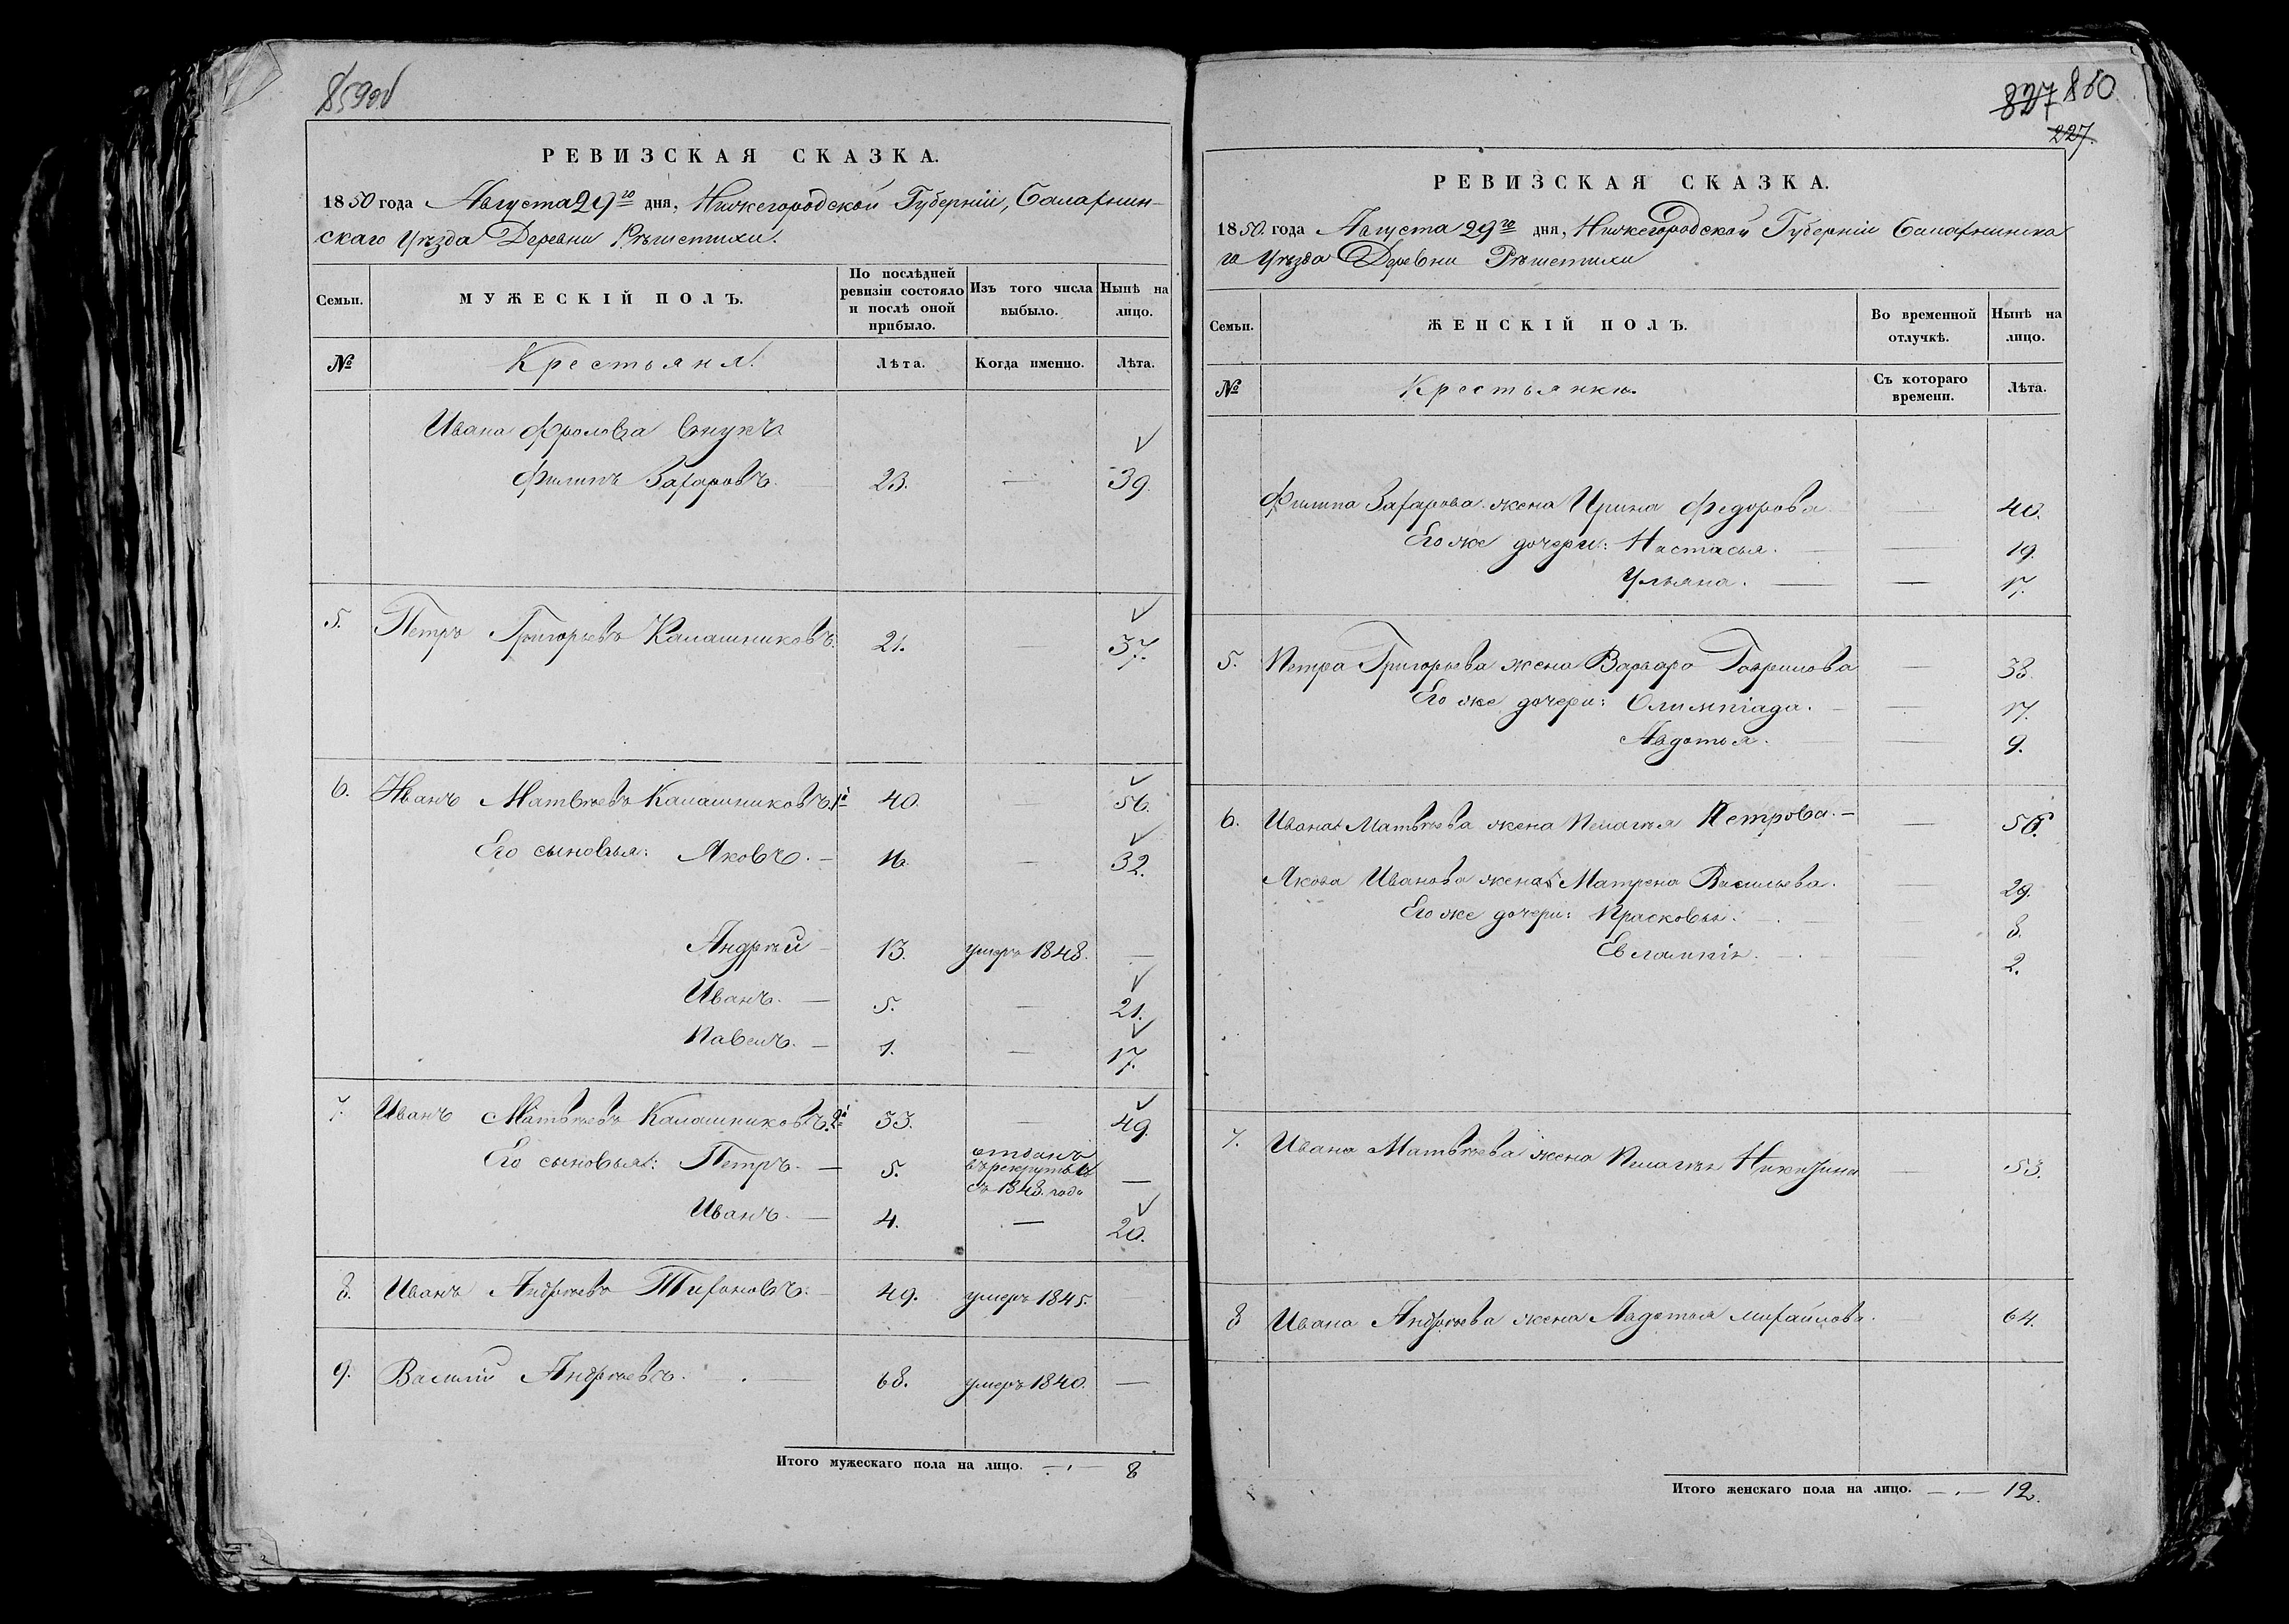 859об
РЕВИЗСКАЯ СКАЗКА.
1850 года Августа 29го дня, Нижегородской Губерніи, Балахнин-
скаго Уѣзда Деревни Рѣшетихи.
Семьи.
МУЖЕСКІЙ ПОЛЪ.
По послѣдней ревизіи состояло и послѣ оной прибыло.
Изъ того числа выбыло.
Нынѣ на лицо.
№ Крестьяня. Лѣта. Когда именно. Лѣта.
Ивана Фролова внукъ
Филипъ Захаровъ. 23. — 39.
5. Петръ Григорьевъ Калашниковъ. 21. — 37.
6. Иванъ Матвѣевъ Калашниковъ 1й 40. 56.
Его сыновья: Яковъ. — 16. — 32.
Андрѣй — 13. умеръ 1848. —
Иванъ. — 5. — 21.
Павелъ. — 1. — 17.
7. Иванъ Матвѣевъ Калашниковъ. 2й 33. — 49.
Его сыновья: Петръ. — 5. отданъ
въ рекруты
въ 1848 года —
Иванъ. — 4. — 20.
8. Иванъ Андрѣевъ Тихоновъ. — 49. умеръ 1845. —
9. Василій Андрѣевъ. — 68. умеръ 1840. —
Итого мужескаго пола на лицо. — 8
827 860
227.
РЕВИЗСКАЯ СКАЗКА.
1850. года Августа 29го дня, Нижегородской Губерніи Балахнинска
го Уѣзда Деревни Рѣшетихи
Семьи.
ЖЕНСКІЙ ПОЛЪ.
Во временной отлучкѣ.
Нынѣ на лицо.
№ Крестьянки. Съ котораго времени. Лѣта.
Филипа Захарова жена Ирина Федорова — 40.
Его же дочери: Настасья. — — 19.
Ульяна. — — 17.
5. Петра Григорьева жена Варвара Гаврилова — 38.
Его же дочери: Олимпіада. — — 17.
Авдотья. — — 9.
6. Ивана Матвѣева жена Пелагѣя Петрова. — — 56.
Якова Иванова жена Матрена Васильева. — 29.
Его же дочери: Прасковья. — 8.
Евлампія. — — 2.
7. Ивана Матвѣева жена Пелагѣя Никитина — 53.
8 Ивана Андрѣева жена Авдотья Михайлова. — 64.
Итого женскаго пола на лицо. — 12.